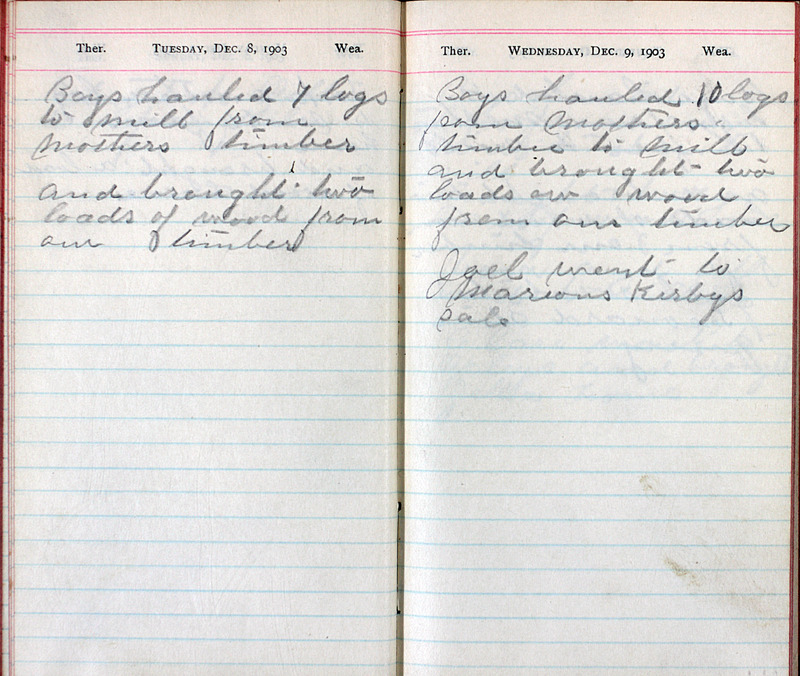 Ther. TUESDAY, DEC. 8, 1903 Wea.
Boys hauled 7 logs
to mill from
mothers timber
and brought two
loads of wood from
our timber
Ther. WEDNESDAY, DEC. 9, 1903 Wea.
Boys hauled 10 logs
from mothers
timber to mill
and brought two
loads ow wood
from our timber
Joel went to
Marions Kirbys
sale